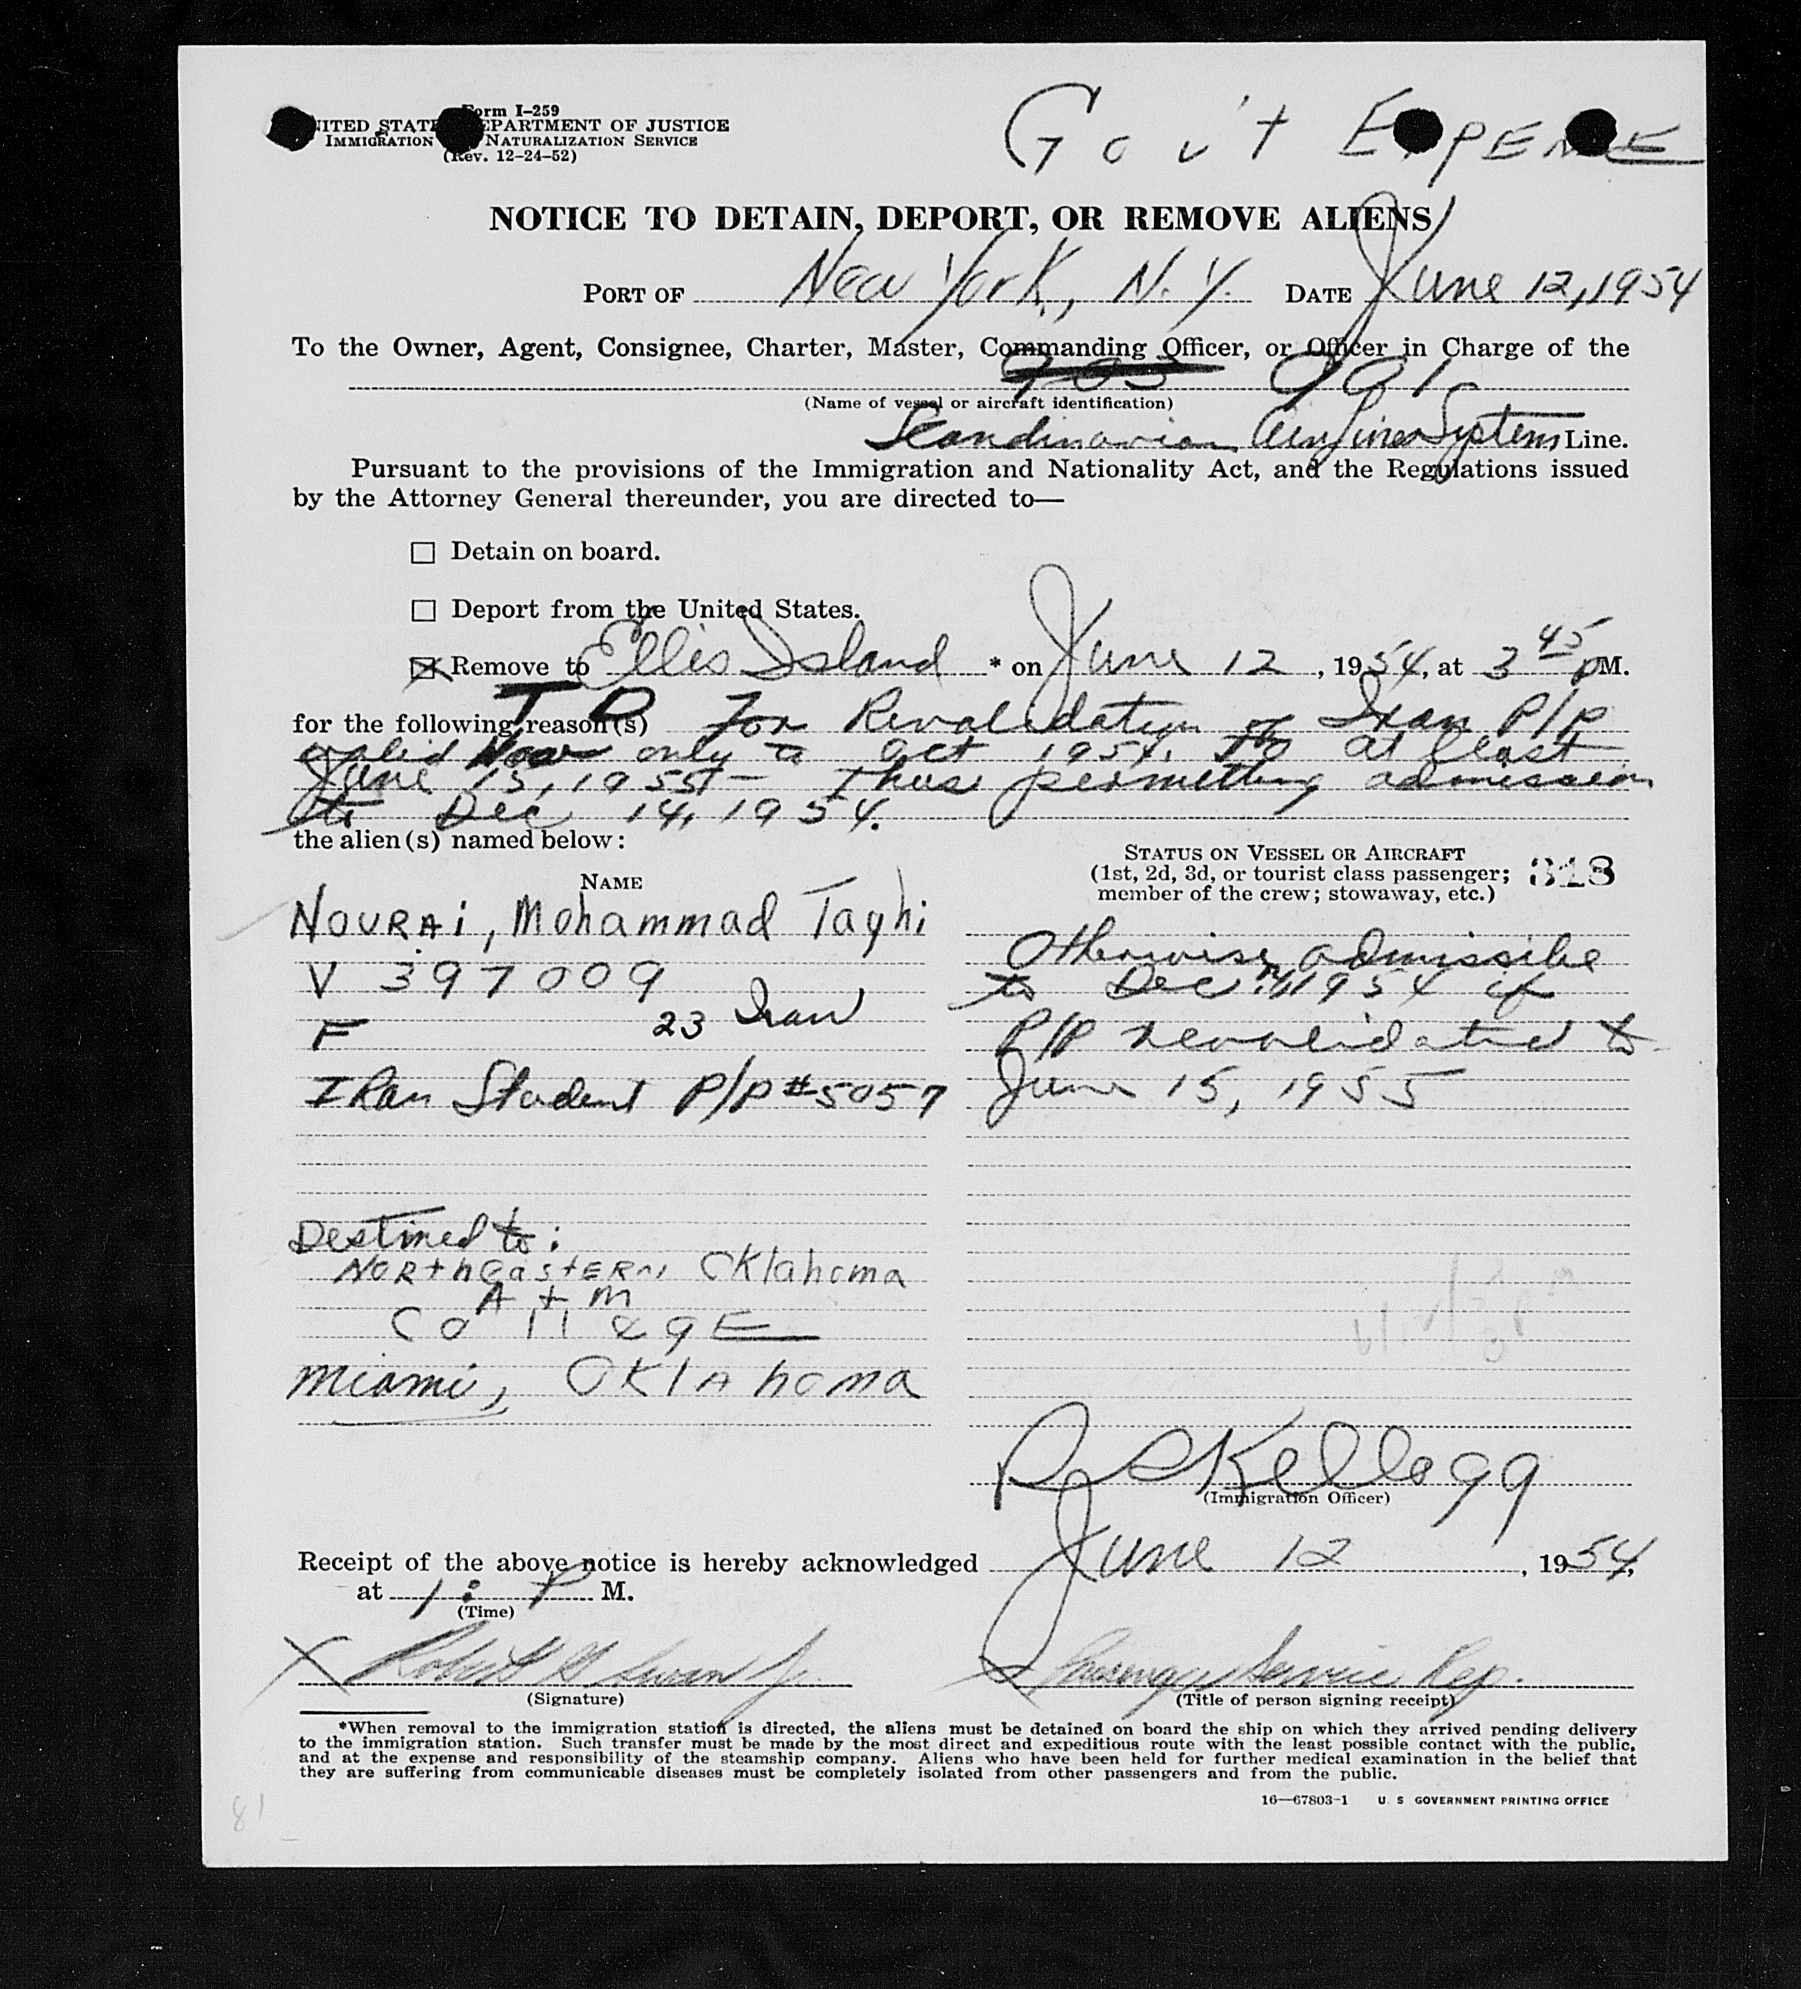 Form I-259
UNITED STATES DEPARTMENT OF JUSTICE
IMMIGRATION NATURALIZATION SERVICE
(Rev. 12-24-52)
Gov't EXPENSE
NOTICE TO DETAIN, DEPORT, OR REMOVE ALIENS
PORT OF New York, N.Y. DATE June 12, 1954
To the Owner, Agent, Consignee, Charter, Master, Commanding Officer, or Officer in Charge of the
903 901
(Name of vessel or aircraft identification)
Scandinavian Airlines System Line.
Pursuant to the provisions of the Immigration and Nationality Act, and the Regulations issued
by the Attorney General thereunder, you are directed to—
☐ Detain on board.
☐ Deport from the United States.
☒ Remove to Ellis Island * on June 12, 1954, at 3 45 PM.
T D
for the following reason(s) For Revalidation of Iran P/P
valid Now only to Oct 1954. To at least
June 15, 1955 — Thus permitting admission
to Dec 14, 1954.
the alien(s) named below:
NAME
STATUS ON VESSEL OR AIRCRAFT
(1st, 2d, 3d, or tourist class passenger;
member of the crew; stowaway, etc.)
318
NOURAi, Mohammad Taghi
V 397009
F 23 Iran
IRan Student P/P #5057
Otherwise admissible
to Dec. 14 1954 if
P/P revalidated to
June 15, 1955
Destined to:
NORTHeasTERN OKlahoma
A + M
CollegE
Miami, OKlAhoma
Kellogg
(Immigration Officer)
Receipt of the above notice is hereby acknowledged June 12, 1954,
at 1: P M.
(Time)
X Robert W Swan Jr.
(Signature)
X Passenger Service Rep.
(Title of person signing receipt)
*When removal to the immigration station is directed, the aliens must be detained on board the ship on which they arrived pending delivery
to the immigration station. Such transfer must be made by the most direct and expeditious route with the least possible contact with the public,
and at the expense and responsibility of the steamship company. Aliens who have been held for further medical examination in the belief that
they are suffering from communicable diseases must be completely isolated from other passengers and from the public.
16—67803-1 U. S. GOVERNMENT PRINTING OFFICE
81